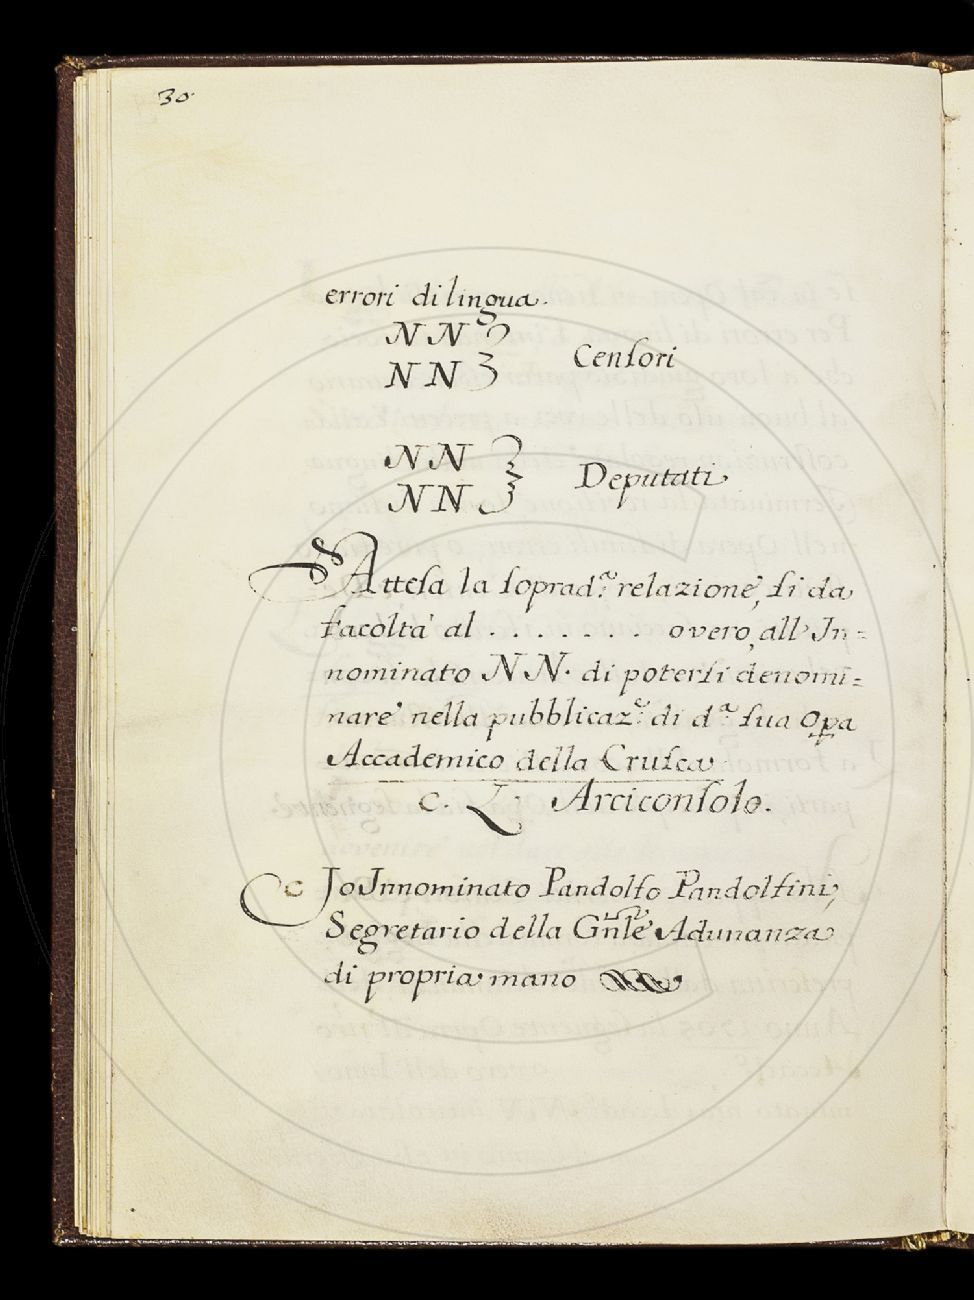 30.
errori di lingua.
NN
NN
Cenſori
NN
NN
Deputati
Atteſa la ſoprad.ª relazione, ſi da
facoltà al . . . . . . . . overo, all' In=
nominato NN. di poterſi denomi=
nare nella pubblicaz.e di d.ª ſua Opa
Accademico della Cruſca
C. L' Arciconſolo.
Jo Innominato Pandolfo Pandolfini,
Segretario della Gnle Adunanza
di propria mano